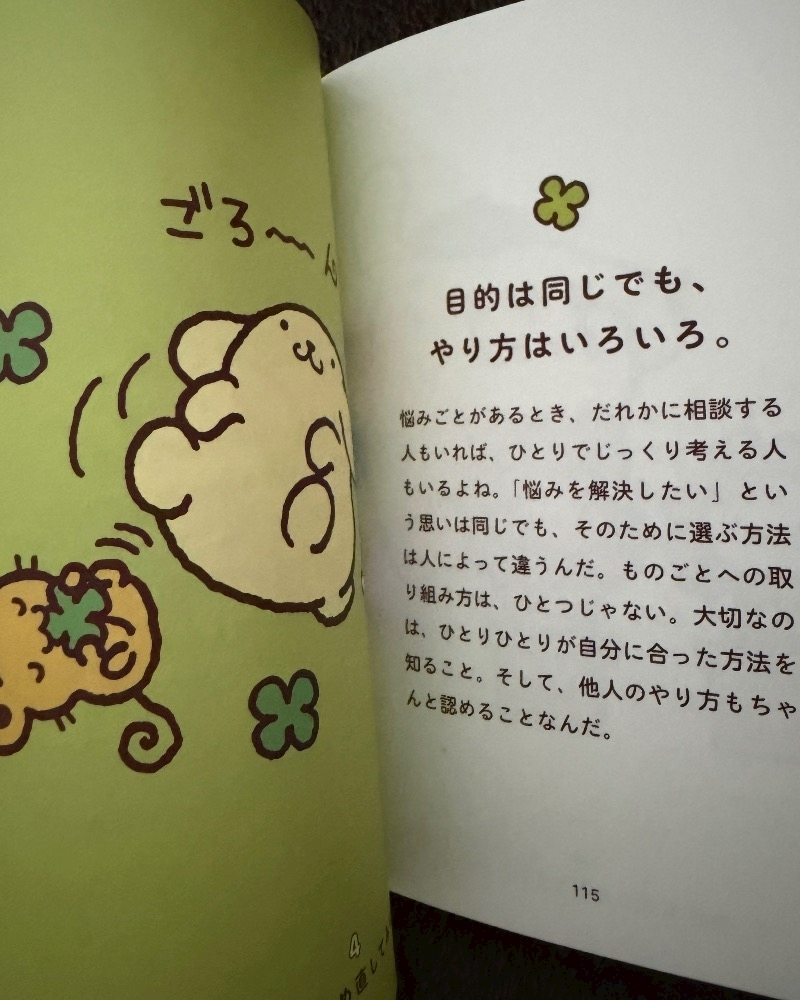 ごろ〜ん
目的は同じでも、
やり方はいろいろ。
悩みごとがあるとき、だれかに相談する
人もいれば、ひとりでじっくり考える人
もいるよね。「悩みを解決したい」とい
う思いは同じでも、そのために選ぶ方法
は人によって違うんだ。ものごとへの取
り組み方は、ひとつじゃない。大切なの
は、ひとりひとりが自分に合った方法を
知ること。そして、他人のやり方もちゃ
んと認めることなんだ。
4
直して
115